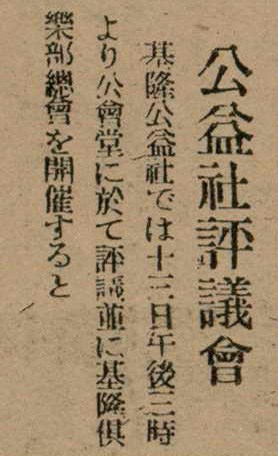 公益社評議會
基隆公益社では十三日午後三時
より公會堂に於て評議並に基隆俱
樂部總會を開催すると